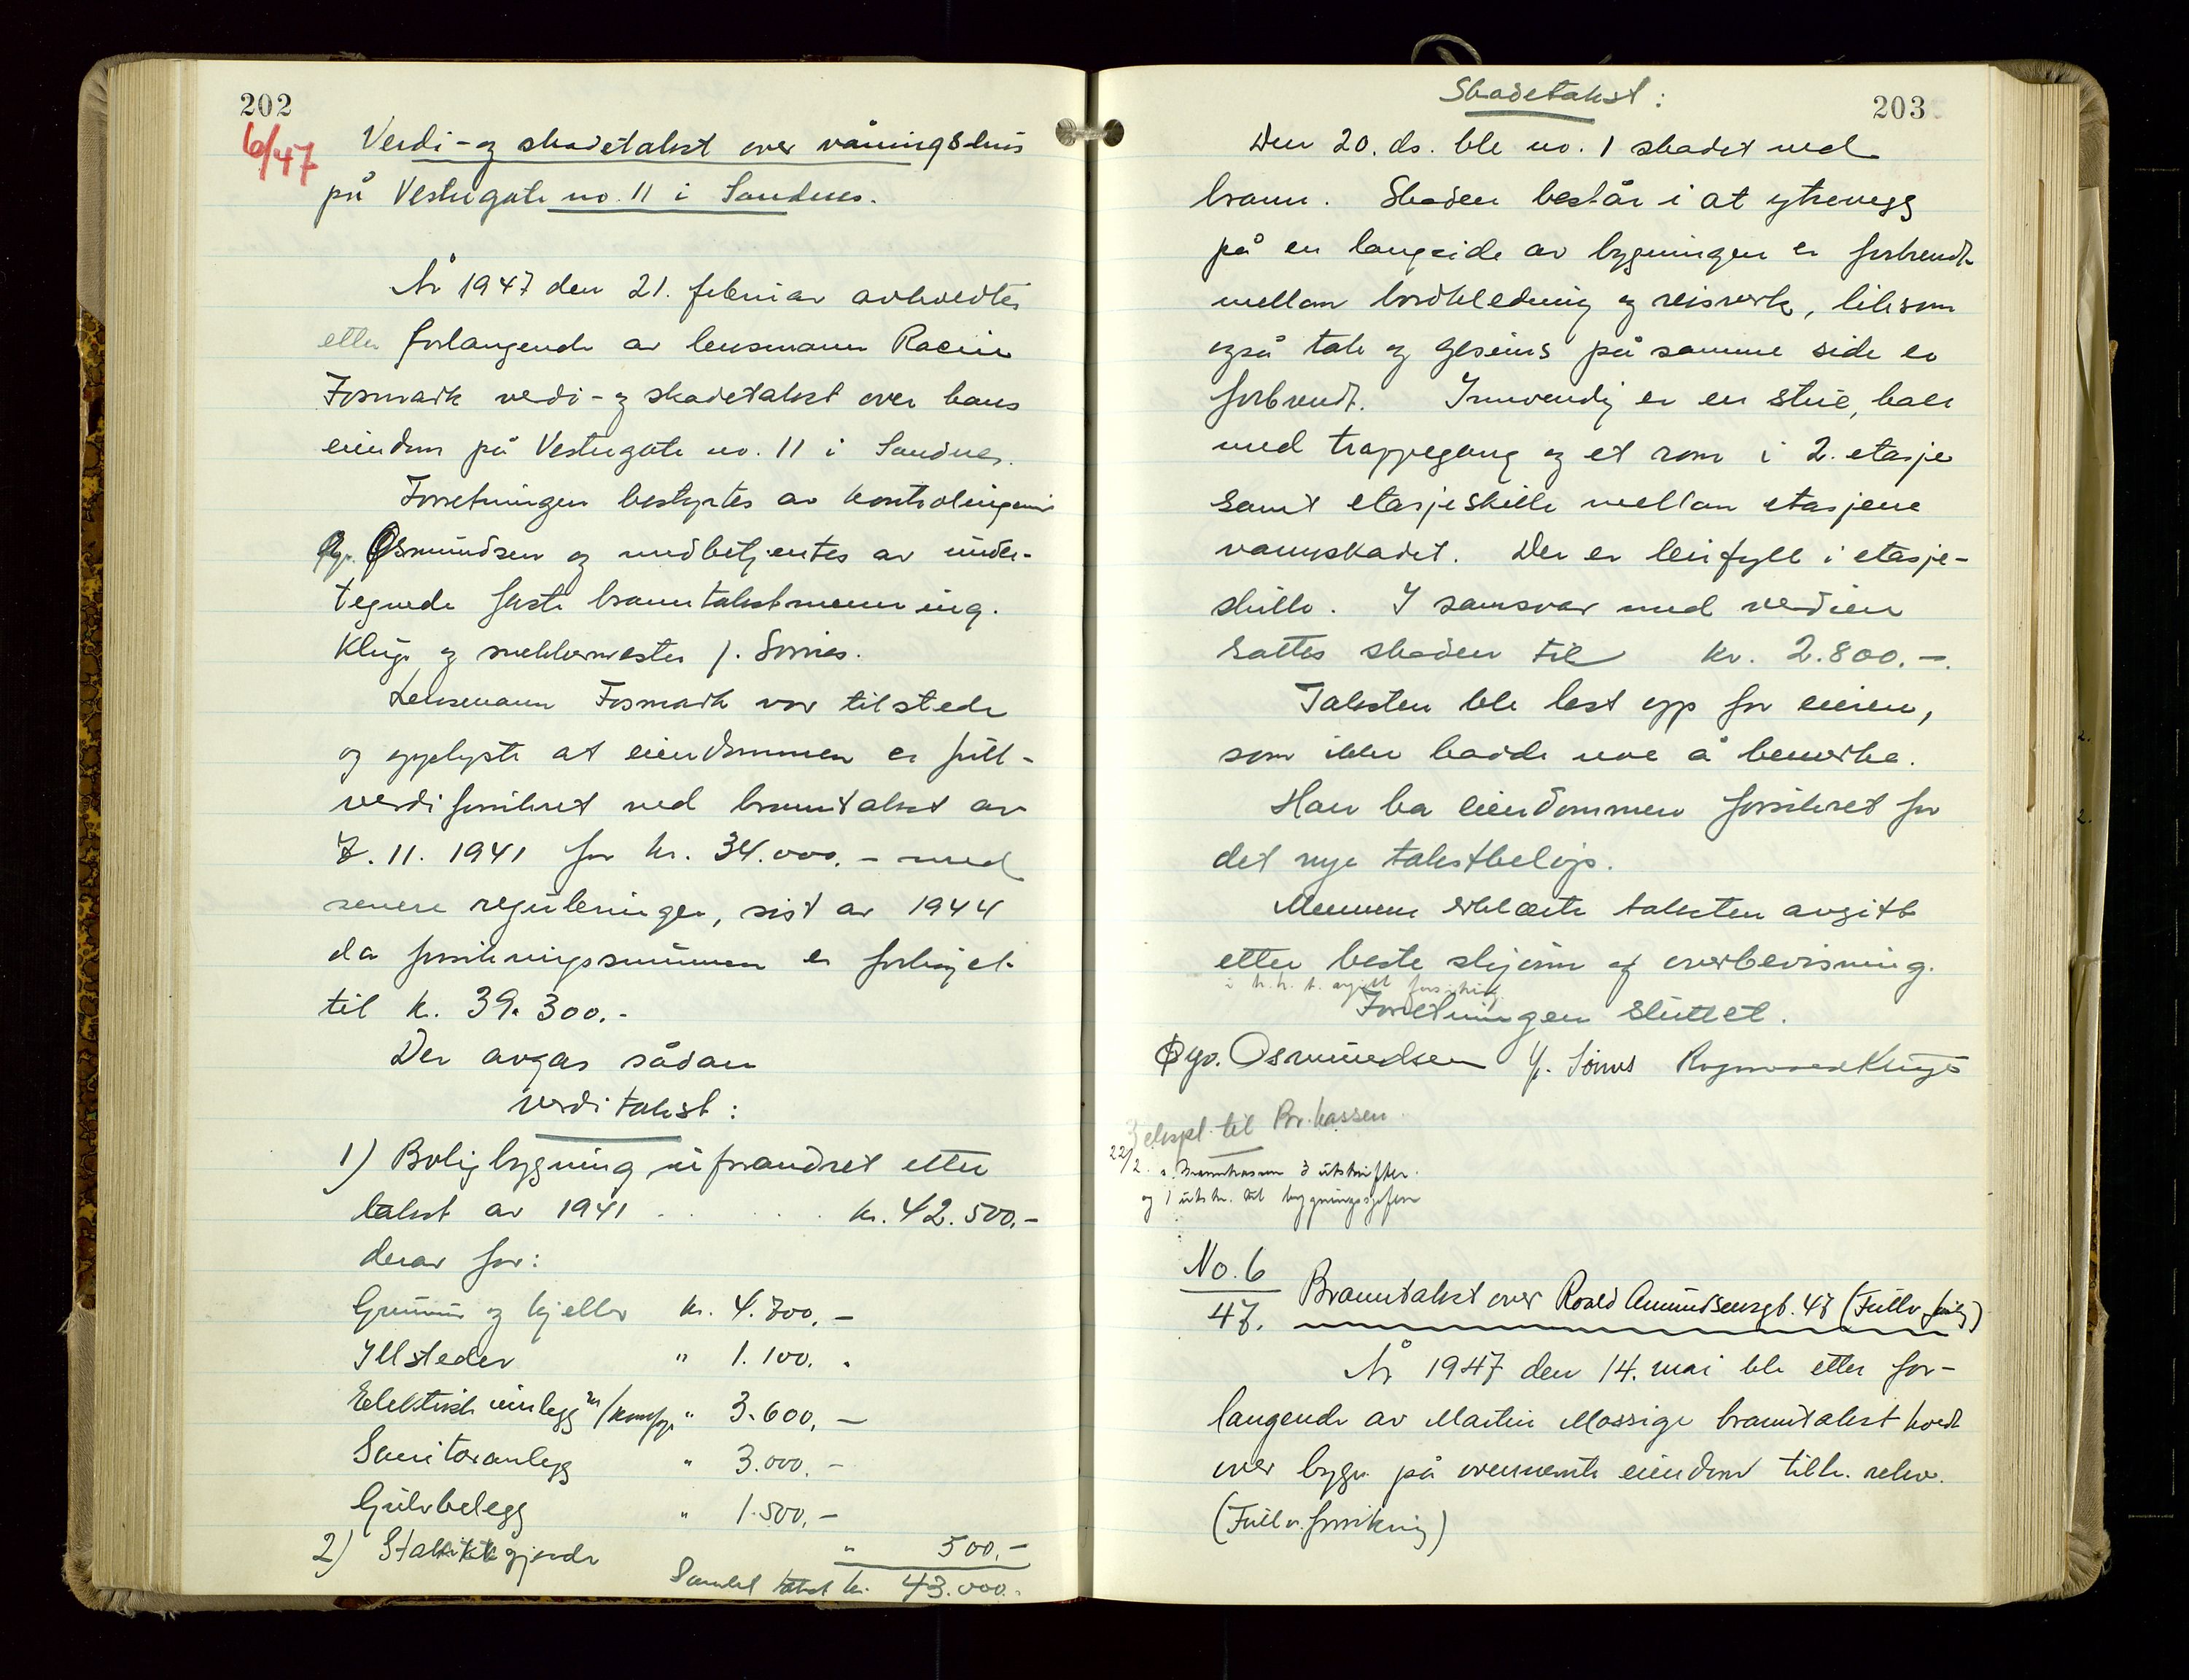 202
6/47
Verdi- og skadetakst over våningshus
på Vestregate no. 11 i Sandnes.
År 1947 den 21. februar avholdtes
etter forlangende av lensmann Racin
Fosmark verdi- og skadetakst over hans
eiendom på Vestregate no. 11 i Sandnes.
Forretningen bestyrtes av kontrolingeniør
Osmundsen og medbetjentes av under-
tegnede faste branntakstmenn ing.
Kluge og snekkermester J. Sørnes.
Lensmann Fosmark var tilstede
og opplyste at eiendommen er full-
verdiforsikret ved branntakst av
7.11. 1941 for kr. 34.000.- med
senere reguleringer, sist av 1944
da forsikringssummen er forhøjet
til k. 39.300.-
Der avgas sådan
verditakst:
1) Boligbygning uforandret etter
takst av 1941 . . . . kr. 42.500.-
derav for:
Grunnur og kjeller kr. 4.700,-
Illsteder " 1.100.
Elektrisk innlegg m/komfyr " 3.600,-
Sanitæranlegg " 3.000.-
Gulvbelegg " 1.500,-
2) Stakittgjerde " 500.-
Samlet takst kr. 43.000.-
Skadetakst:
203
Den 20. ds. ble no. 1 skadet ved
brann. Skaden består i at yttervegg
på en langside av bygningen er forbrendt
mellom bordkledning og reisverk, liksom
også tak og gesims på samme side er
forbrendt. Innvendig er en stue, hall
med trappegang og et rom i 2. etasje
samt etasjeskille mellom etasjene
vannskadet. Der er leirfyll i etasje-
skille. I samsvar med verdien
sattes skaden til kr. 2.800.-.
Taksten ble lest opp for eieren,
som ikke hadde noe å bemerke.
Han ba eiendommen forsikret for
det nye takstbeløp.
Mennene erklærte taksten avgitt
etter beste skjønn og overbevisning.
i h.h. t. avgitt forsikring.
Forretningen sluttet.
Øyv. Osmundsen J. Sørnes Ragnvald Kluge
3 ekspl. til Br.kassen
22/2. s. Brannkassen 3 utskrifter.
og 1 utskr. til bygningssjefen
No. 6
47. Branntakst over Roald Amundsensgt. 47 (Fullv. fors.)
År 1947 den 14. mai ble etter for-
langende av Martin Mossige branntakst holdt
over bygn. på ovennevnte eiendom tilh. rekv.
(Fullv. forsikring)